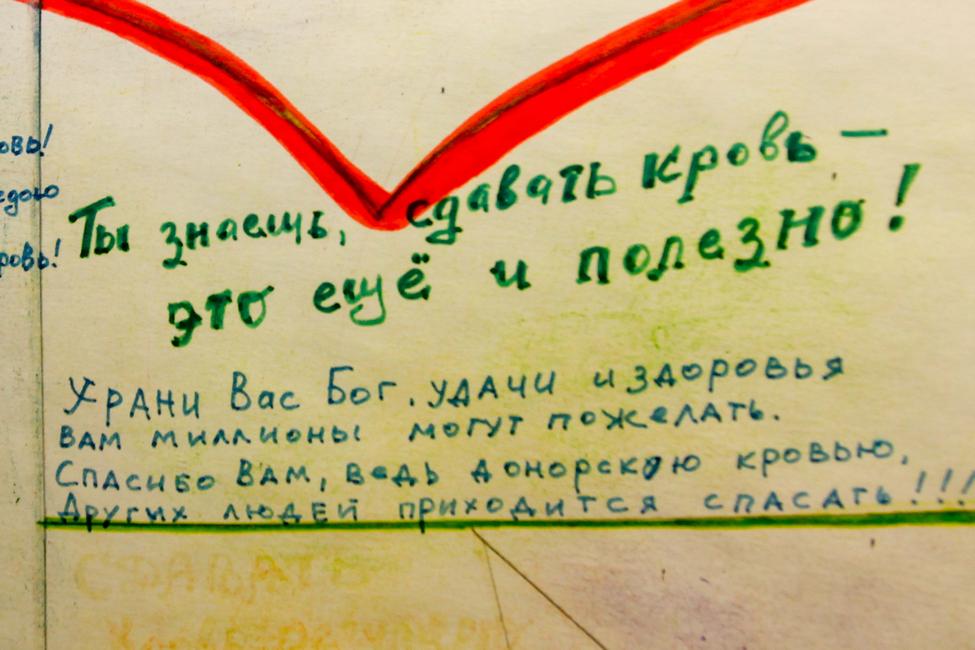 Ты знаешь, сдавать кровь –
это ещё и полезно!
Храни Вас Бог. удачи и здоровья
вам миллионы могут пожелать.
Спасибо Вам, ведь донорскую кровью,
Других людей приходится спасать!!!
СДАВАТЬ